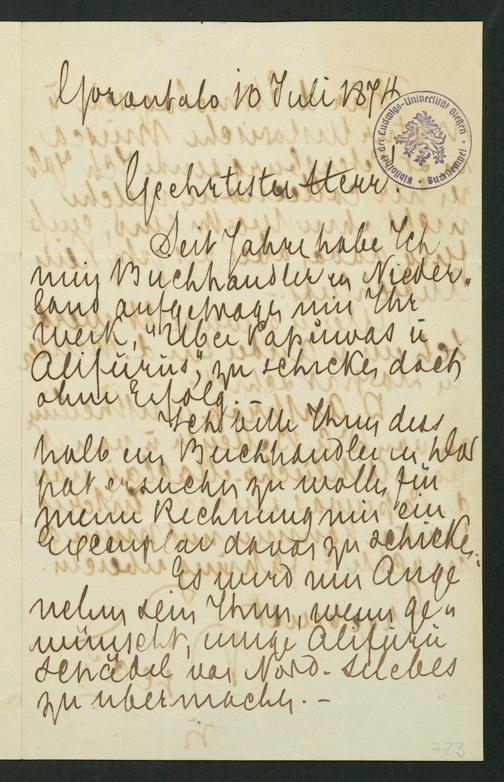 Gorontalo 10 Juli 1874
Bibliothek der Ludwigs-Universität Gießen
Geehrtester Herr!
Seit Jahre habe Ich
min Buchhandler in Nieder„
land aufgetragen mir Ihr
Werk, "Uber Papuwas u
Alifurus", zu schicken doch
ohne Erfolg.
Ich bitte Ihnen dess
halb ein Buchhandler in Dor
pat ersuchen zu wollen für
meine Rechnung mir ein
Exemplar davon zu schicken.
Es wird mir Ange
nehm sein Ihnen, wenn ge„
wünscht, einige Alifuru
schädel von Nord-Selebes
zu ubermachen. –
723